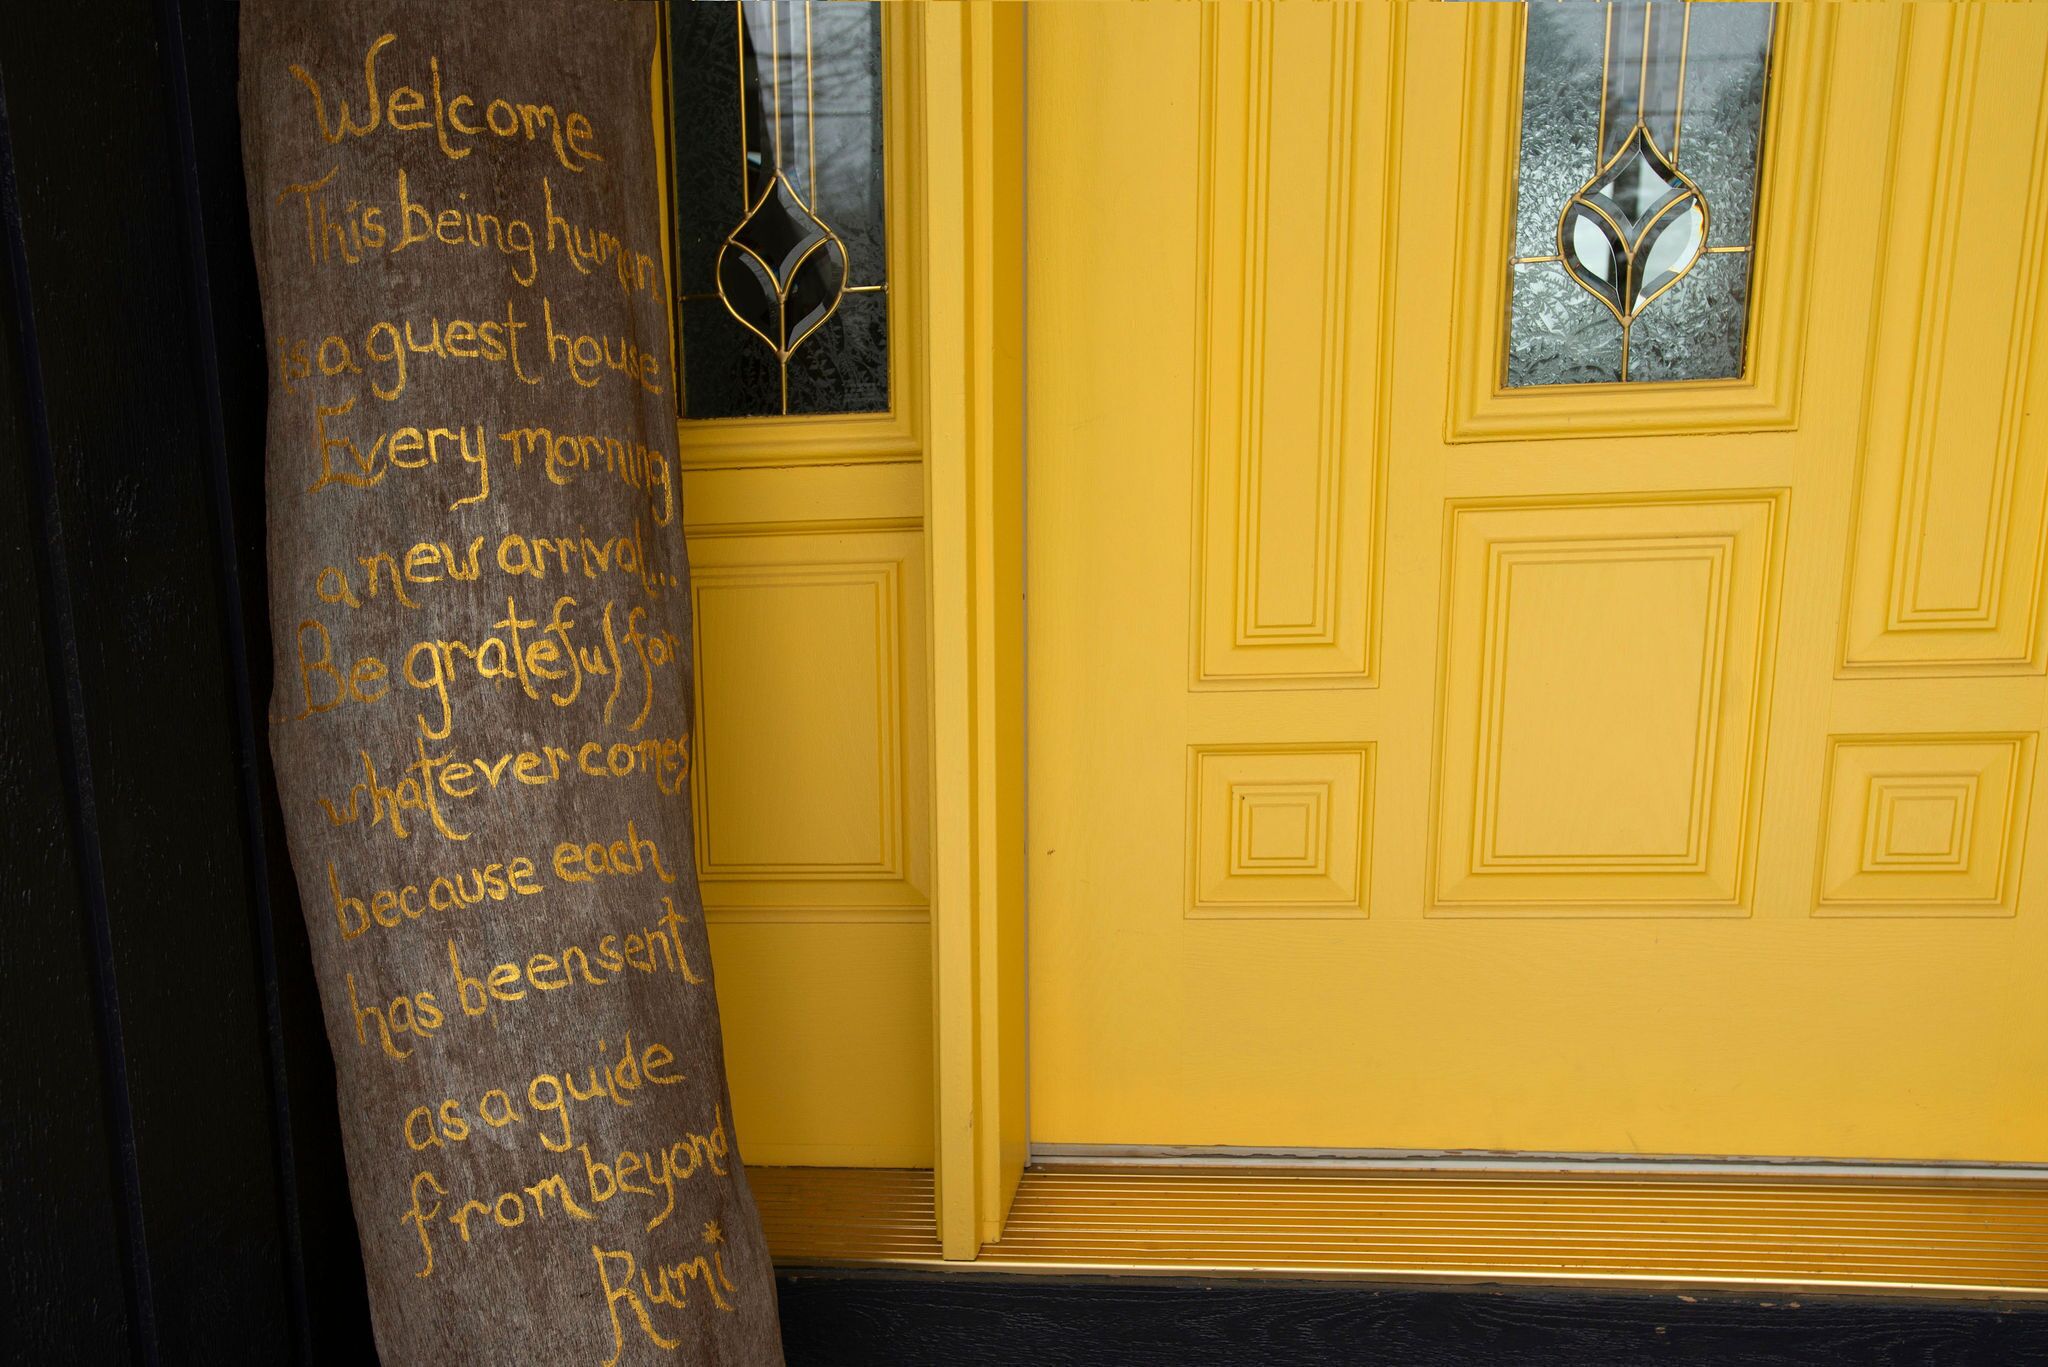 Welcome
This being human
is a guest house
Every morning
a new arrival...
Be grateful for
whatever comes
because each
has been sent
as a guide
from beyond
Rumi